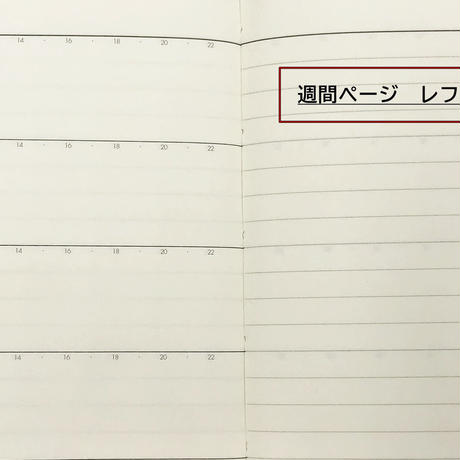 14 · 16 · 18 · 20 · 22
週間ページ　レフ
14 · 16 · 18 · 20 · 22
14 · 16 · 18 · 20 · 22
14 · 16 · 18 · 20 · 22